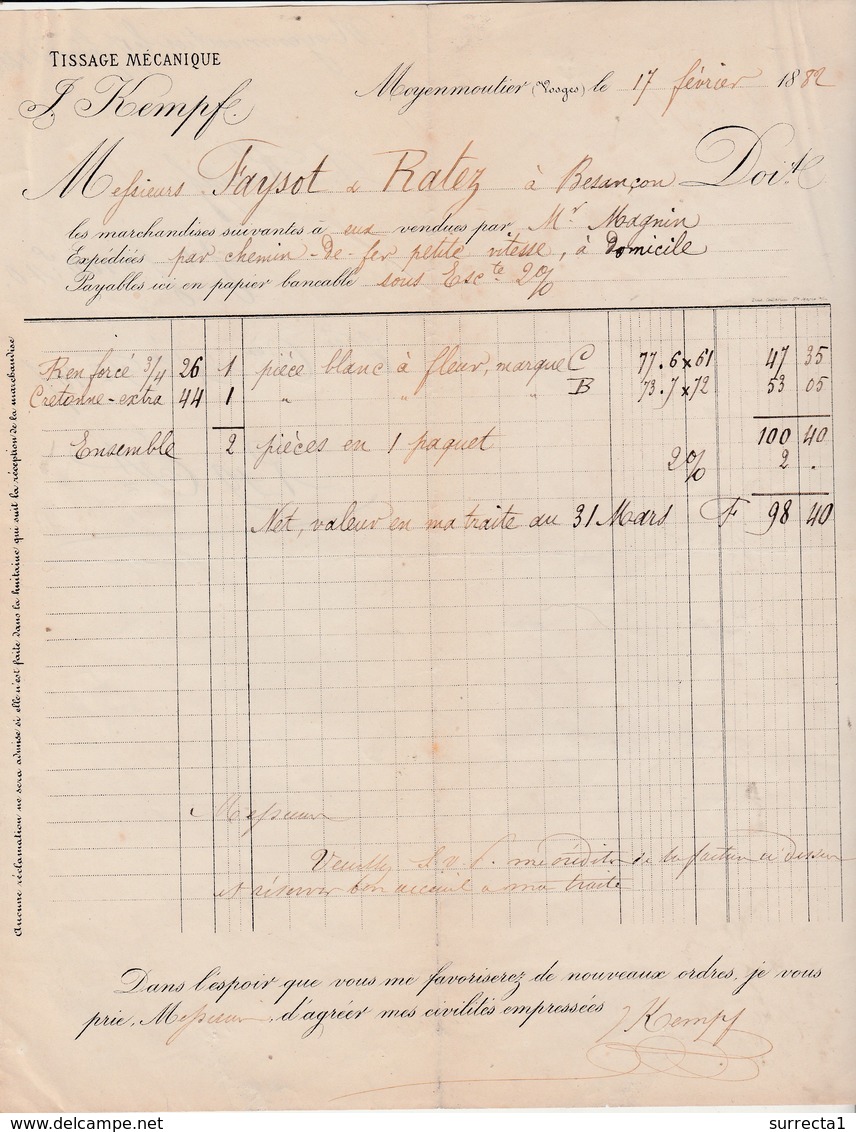 TISSAGE MÉCANIQUE
J. Kempf.
Moyenmoutier (Vosges) le 17 février 1882
Messieurs Faysot & Ratez à Besançon Doivt
les marchandises suivantes à eux vendues par Mr Magnin
Expédiées par chemin-de-fer petite vitesse, à domicile
Payables ici en papier bancable sous Escte 2%
Renforcé 3/4 26 1 pièce blanc à fleur, marque C 77.6 x 61 47 35
Cretonne-extra 44 1 " " " B 73.7 x 72 53 05
Ensemble 2 pièces en 1 paquet 100 40
2% 2 .
Net, valeur en ma traite au 31 Mars F 98 40
Aucune réclamation ne sera admise si elle n'est faite dans la huitaine qui suit la réception de la marchandise
Messieurs
Veuillez S.V.P. me créditer de la facture ci dessus
et réserver bon accueil à ma traite
Dans l'espoir que vous me favoriserez de nouveaux ordres, je vous
prie, Messieurs, d'agréer mes civilités empressées
J Kempf
www.delcampe.net
surrecta1